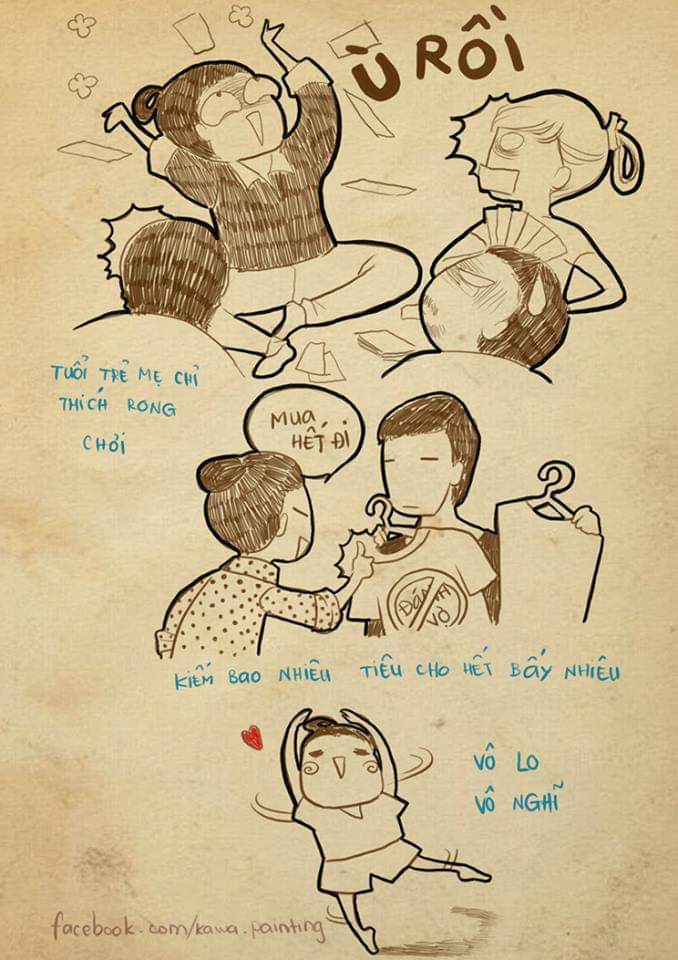 Ù RỒI
TUỔI TRẺ MẸ CHỈ
THÍCH RONG
CHƠI
MUA
HẾT ĐI
VỢ
KIẾM BAO NHIÊU TIÊU CHO HẾT BẤY NHIÊU
VÔ LO
VÔ NGHĨ
facebook.com/kawa.painting